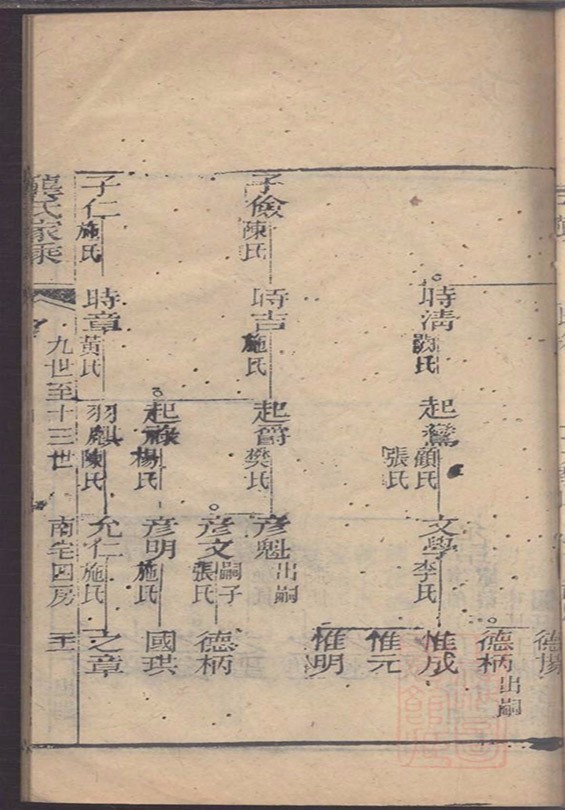 德
德柄出嗣
時淸陶氏
起鸞顧氏張氏
文學李氏
惟成
惟元
惟明
子儉陳氏
時吉施氏
起爵樊氏
彥魁出嗣
彥文嗣子張氏
德柄
起祿楊氏
彥明施氏
國琪
子仁施氏
時章黃氏
羽麒陳氏
允仁施氏
之章
龔氏家乘
九世至十三世
南宅四房